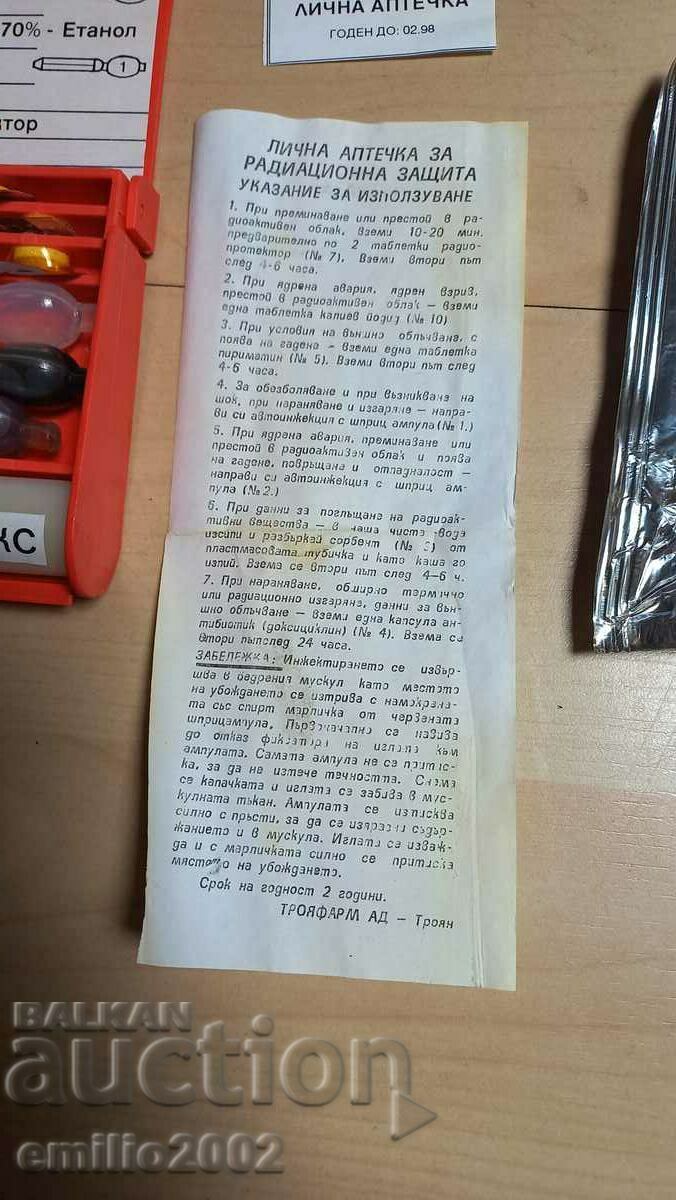 70% - Етанол
1
тор
КС
ЛИЧНА АПТЕЧКА
ГОДЕН ДО: 02.98
ЛИЧНА АПТЕЧКА ЗА
РАДИАЦИОННА ЗАЩИТА
УКАЗАНИЕ ЗА ИЗПОЛЗУВАНЕ
1. При преминаване или престой в ра-
диоактивен облак, вземи 10-20 мин.
предварително по 2 таблетки радио-
протектор (№ 7). Вземи втори път
след 4-6 часа.
2. При ядрена авария, ядрен взрив,
престой в радиоактивен облак – вземи
една таблетка калиев йодид (№ 10)
3. При условия на външно облъчване, с
поява на гадене – вземи една таблетка
пириматин (№ 5). Вземи втори път след
4-6 часа.
4. За обезболяване и при възникване на
шок, при нараняване и изгаряне – напра-
ви си автоинжекция с шприц ампула (№ 1.)
5. При ядрена авария, преминаване или
престой в радиоактивен облак и поява
на гадене, повръщане и отпадналост –
направи си автоинжекция с шприц ам-
пула (№ 2.)
6. При данни за поглъщане на радиоак-
тивни вещества – в чаша чиста вода
изсипи и разбъркай сорбент (№ 3) от
пластмасовата тубичка и като каша го
изпий. Взема се втори път след 4–6 ч.
7. При нараняване, обширно термично
или радиационно изгаряне, данни за вън-
шно облъчване – вземи една капсула ан-
тибиотик (доксициклин) (№ 4). Взема се
втори път след 24 часа.
ЗАБЕЛЕЖКА: Инжектирането се извър-
шва в бедрения мускул като мястото
на убождането се изтрива с намокрена-
та със спирт марличка от червената
шприцампула. Първоначално се навива
до отказ фиксатора на иглата към
ампулата. Самата ампула не се притис-
ка, за да не изтече течността. Снема
се капачката и иглата се забива в мус-
кулната тъкан. Ампулата се изписква
силно с пръсти, за да се изпразни съдър-
жанието и в мускула. Иглата се изваж-
да и с марличката силно се притиска
мястото на убождането.
Срок на годност 2 години.
ТРОЯФАРМ АД – Троян
BALKAN
auction
emilio2002